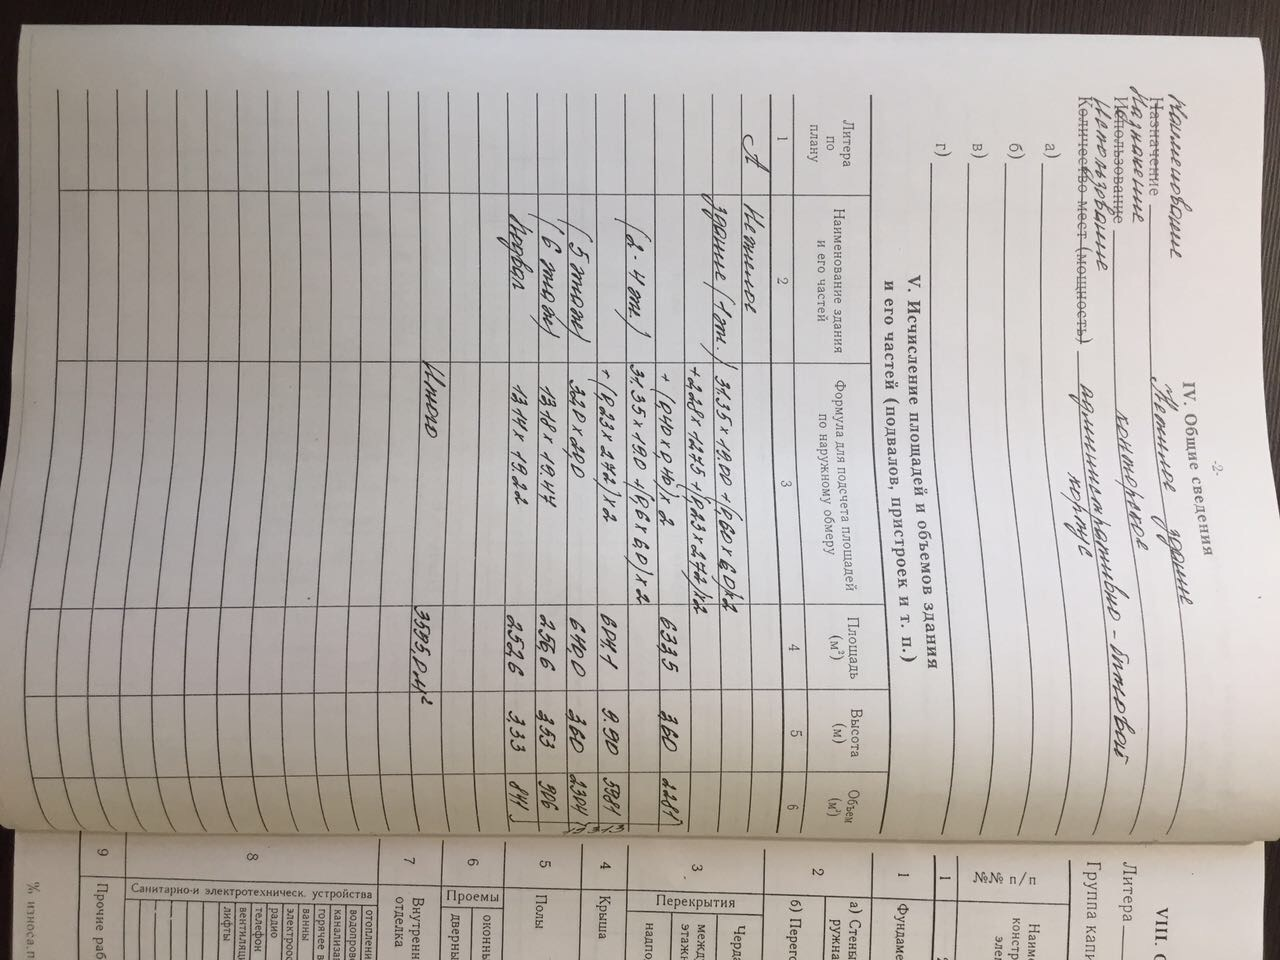 -2-
IV. Общие сведения
Наименование Нежилое здание
Назначение
Назначение конторское
Использование
Использование административно-бытовой
Количество мест (мощность) корпус
а)
б)
в)
г)
V. Исчисление площадей и объемов здания
и его частей (подвалов, пристроек и т. п.)
Литера по плану Наименование здания и его частей Формула для подсчета площадей по наружному обмеру Площадь (м²) Высота (м) Объем (м³)
1 2 3 4 5 6
А Нежилое
здание (1 эт.) 31.35 x 19.00 + (1,60 x 6,0) x 2
+2,28 x 12.75 + (8,23 x 2,72) x 2
+ (0,40 x 0,40) x 2 633,5 3,60 2281
(2-4 эт.) 31.35 x 19.0 + (1,6 x 6,0) x 2
+ (8,23 x 2,72) x 2 604,1 9.90 5981
(5 этаж) 32,0 x 20,0 640,0 3,60 2304
(6 этаж) 13.18 x 19,47 256,6 3,53 906
Подвал 13.14 x 19.22 252,6 3,33 841
Итого 3595,0 м²
VIII. О
Литера
Группа капи
№№ п/п
Наиме
констр
эле
1
1 Фундаме
2 а) Стены
ружна
б) Перего
3 Перекрытия
Черда
межд
этажн
надпо
4 Крыша
5 Полы
6 Проемы
оконны
дверны
7 Внутренн
отделка
8 Санитарно-и электротехническ. устройства
отоплени
водопрово
канализа
горячее в
ванны
электроос
радио
телефон
вентиляци
лифты
9 Прочие раб
% износа.п